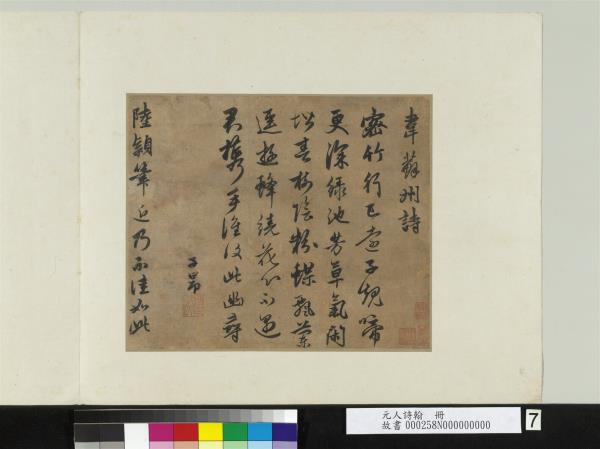 韋蘇州詩
密竹行已遠子規啼
更深綠池芳草氣閑
堦春樹陰粉蝶飄蘭
逕遊蜂繞花心不遇
君攜手誰復此幽尋
子昂
陸穎筆近乃不佳如此
元人詩翰 冊
故書 000258N000000000
7